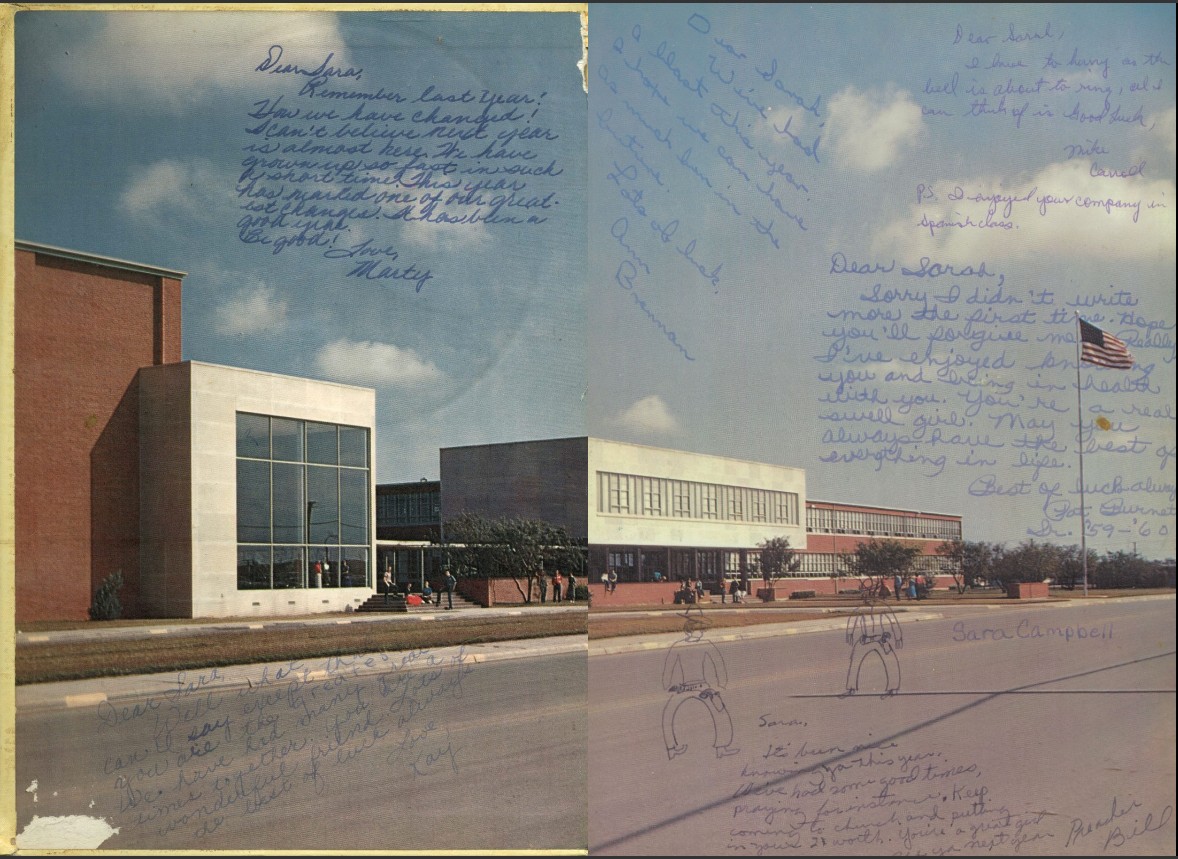 Dear Sara,
Remember last year!
How we have changed!
I can't believe next year
is almost here. We have
grown up so fast in such
a short time. This year
has marked one of our great-
est changes. It has been a
good year.
Be good!
Love,
Marty
Dear Sarah,
We've had
a blast this year
I hope we can have
as much fun in the
future.
Lots of luck.
Ann
Brannan
Dear Sarah,
I have to hurry as th
bell is about to ring, all I
can think of is Good Luck,
Mike
Carrell
PS. I enjoyed your company in
Spanish class.
Dear Sarah,
Sorry I didn't write
more the first time. Hope
you'll forgive me. Really
I've enjoyed knowing
you and being in health
with you. You're a real
swell girl. May you
always have the best of
everything in life.
Best of luck always
Pat
Jr. '59-'60
Dear Sara,
Well, what
can I say except this
you are the
We have had many good
times together. You are a
wonderful friend. Lots of
the best of luck always
Love
Kay
Sara Campbell
Sara,
It's been nice
knowing ya this year.
We've had some good times,
praying for instance. Keep
coming to church and putting
in your 2¢ worth. You're a great girl
See ya next year
Preacher
Bill